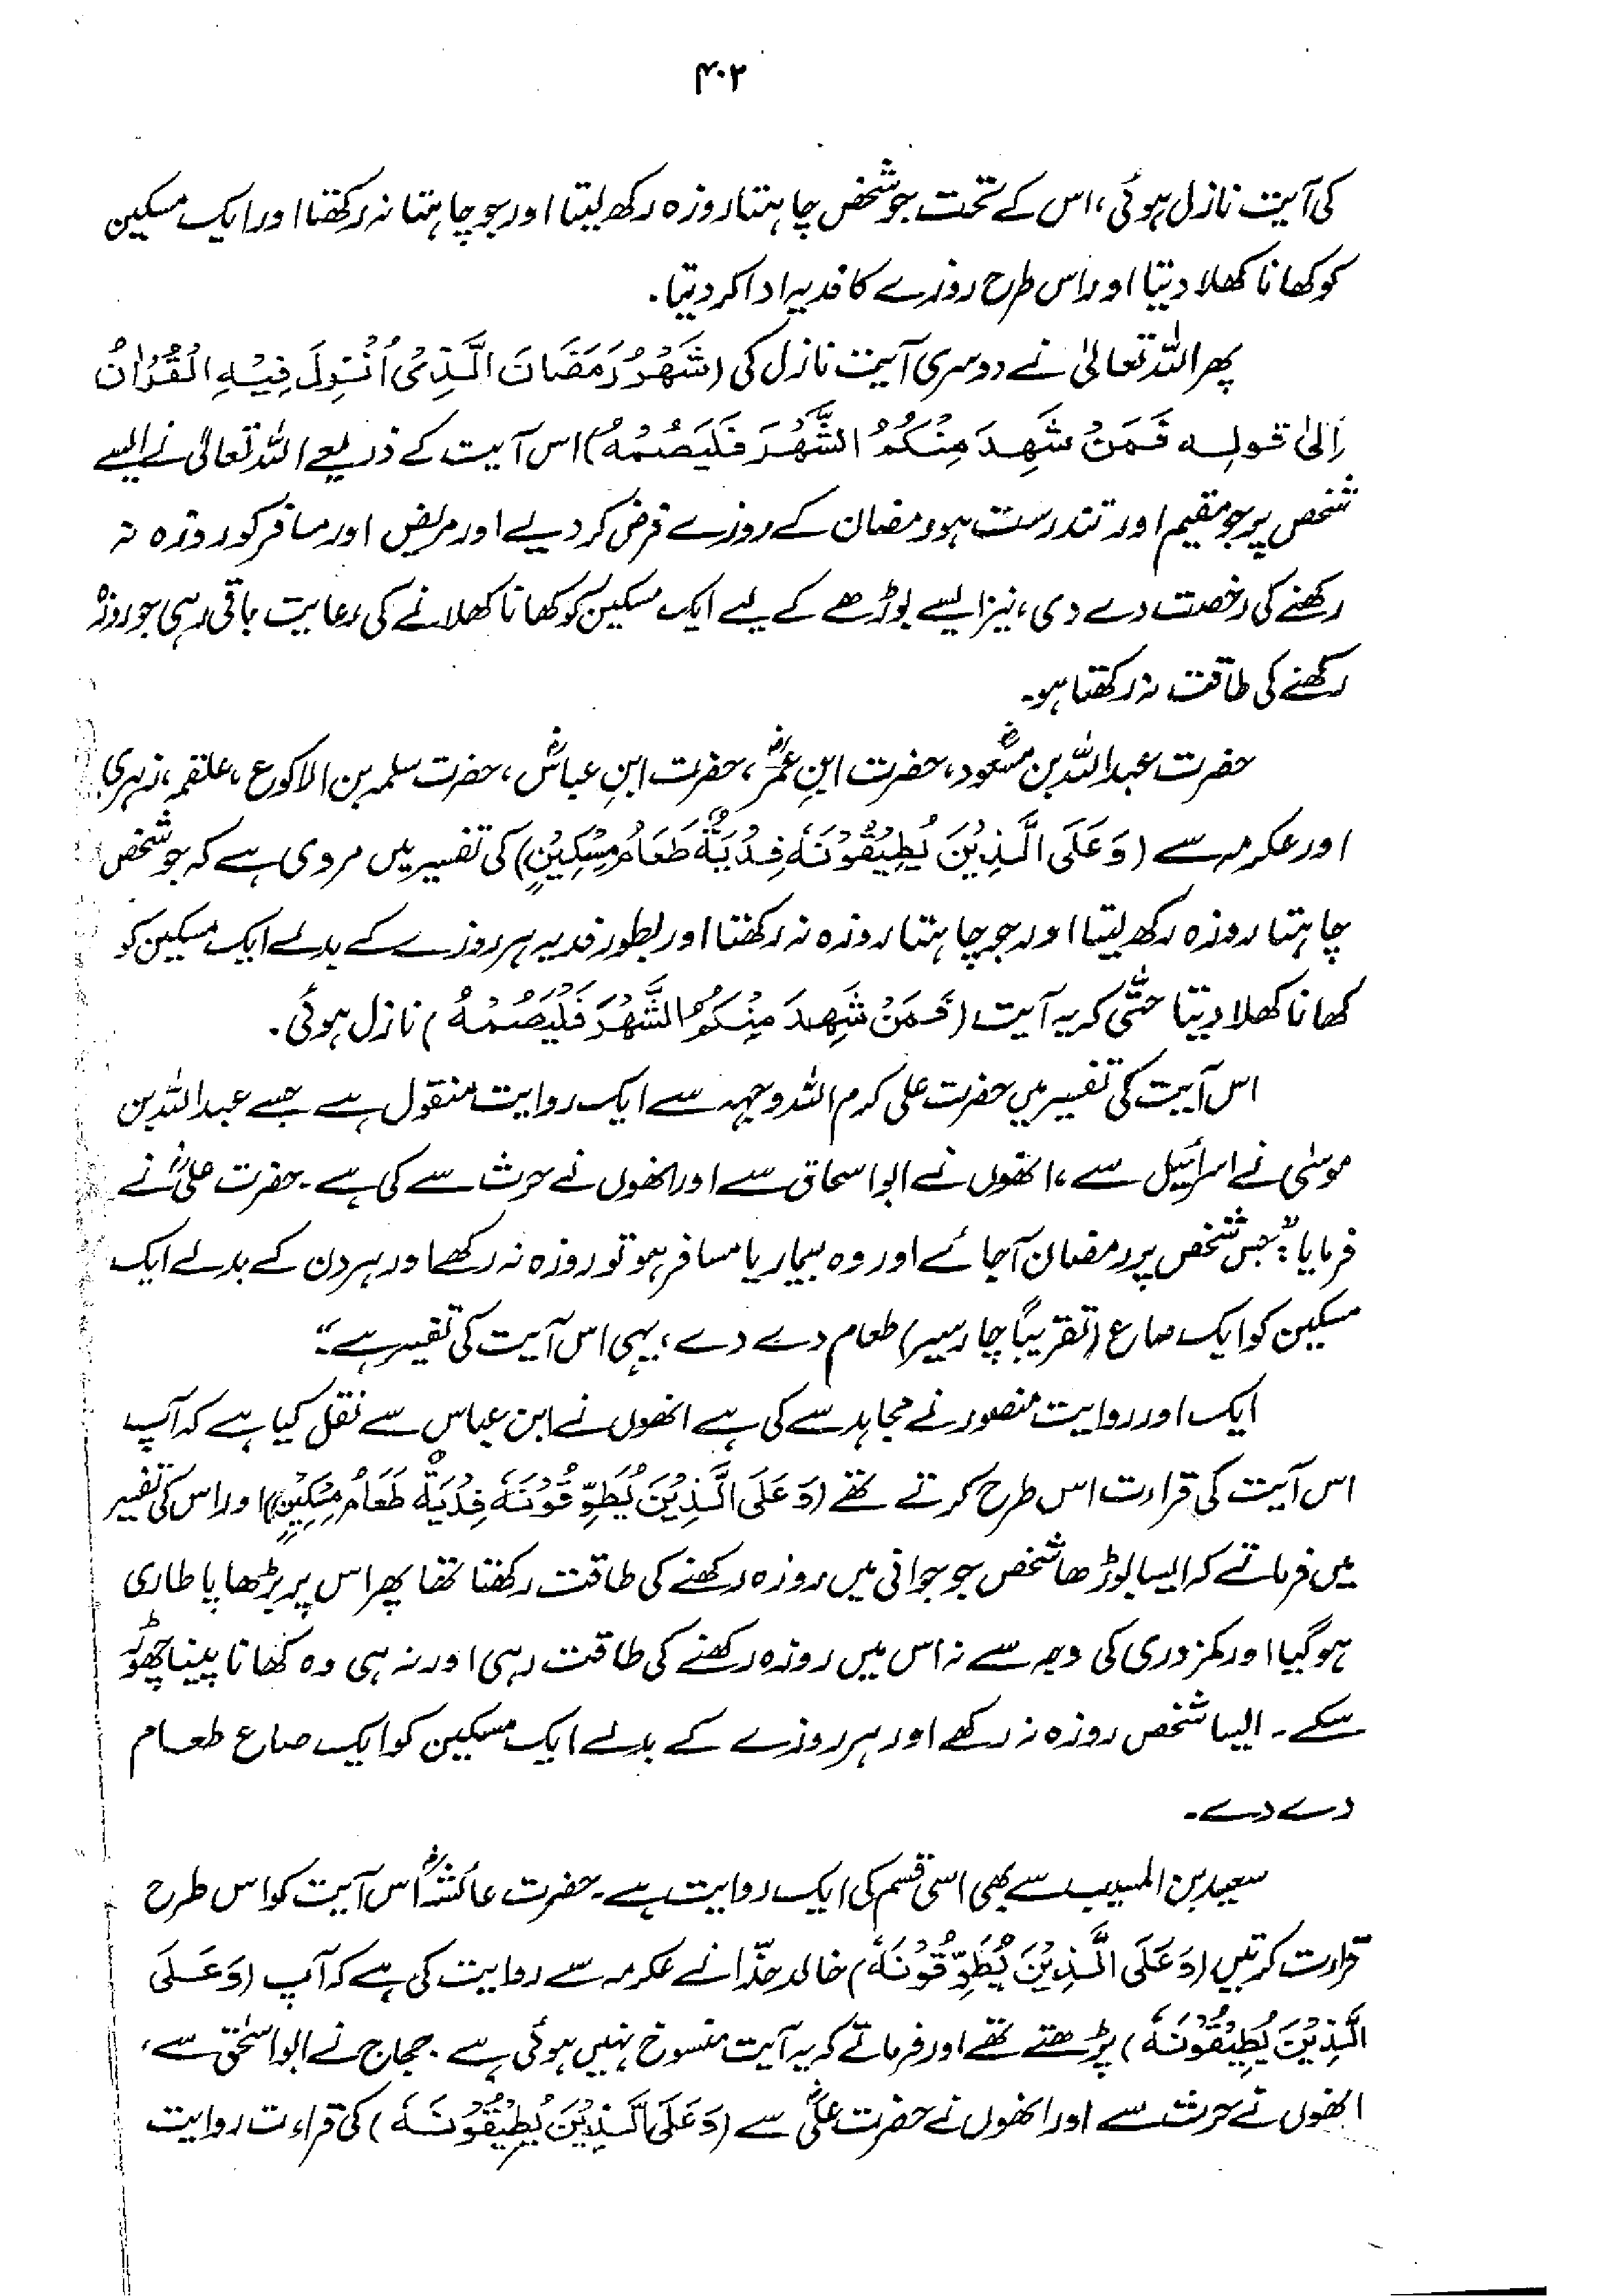 ۴۰۲
کی آیت نازل ہوئی، اس کے تحت جو شخص چاہتا روزہ رکھ لیتا اور جو چاہتا نہ رکھتا اور ایک مسکین
کو کھانا کھلا دیتا اور اس طرح روزے کا فدیہ ادا کر دیتا۔
پھر اللہ تعالیٰ نے دوسری آیت نازل کی (شَهْرُ رَمَضَانَ الَّذِیْ اُنْزِلَ فِیْهِ الْقُرْاٰنُ
اِلیٰ قولِه فَمَنْ شَهِدَ مِنْكُمُ الشَّهْرَ فَلْیَصُمْهُ) اس آیت کے ذریعے اللہ تعالیٰ نے ایسے
شخص پر جو مقیم اور تندرست ہو رمضان کے روزے فرض کر دیے اور مریض اور مسافر کو روزہ نہ
رکھنے کی رخصت دے دی، نیز ایسے بوڑھے کے لیے ایک مسکین کو کھانا کھلانے کی رعایت باقی رہی جو روزہ
رکھنے کی طاقت نہ رکھتا ہو۔
حضرت عبداللہ بن مسعودؓ، حضرت ابنِ عمرؓ، حضرت ابنِ عباسؓ، حضرت سلمہ بن الاکوع، علقمہ، زہری
اور عکرمہ سے (وَعَلَى الَّذِیْنَ یُطِیْقُوْنَهٗ فِدْیَةٌ طَعَامُ مِسْكِیْنٍ) کی تفسیر میں مروی ہے کہ جو شخص
چاہتا روزہ رکھ لیتا اور جو چاہتا روزہ نہ رکھتا اور بطور فدیہ ہر روزے کے بدلے ایک مسکین کو
کھانا کھلا دیتا حتّٰی کہ یہ آیت (فَمَنْ شَهِدَ مِنْكُمُ الشَّهْرَ فَلْیَصُمْهُ) نازل ہوئی۔
اس آیت کی تفسیر میں حضرت علی کرم اللہ وجہہ سے ایک روایت منقول ہے جسے عبداللہ بن
موسٰی نے اسرائیل سے، انھوں نے ابو اسحاق سے اور انھوں نے حرث سے کی ہے۔ حضرت علیؓ نے
فرمایا: "جس شخص پر رمضان آجائے اور وہ بیمار یا مسافر ہو تو روزہ نہ رکھے اور ہر دن کے بدلے ایک
مسکین کو ایک صاع (تقریباً چار سیر) طعام دے دے، یہی اس آیت کی تفسیر ہے۔"
ایک اور روایت منصور نے مجاہد سے کی ہے انھوں نے ابن عباس سے نقل کیا ہے کہ آپ
اس آیت کی قراءت اس طرح کرتے تھے (وَعَلَى الَّذِیْنَ یُطَوَّقُوْنَهٗ فِدْیَةٌ طَعَامُ مِسْكِیْنٍ) اور اس کی تفسیر
میں فرماتے کہ ایسا بوڑھا شخص جو جوانی میں روزہ رکھنے کی طاقت رکھتا تھا پھر اس پر بڑھاپا طاری
ہو گیا اور کمزوری کی وجہ سے نہ اس میں روزہ رکھنے کی طاقت رہی اور نہ ہی وہ کھانا پینا چھوڑ
سکے۔ ایسا شخص روزہ نہ رکھے اور ہر روزے کے بدلے ایک مسکین کو ایک صاع طعام
دے دے۔
سعید بن المسیب سے بھی اسی قسم کی ایک روایت ہے۔ حضرت عائشہؓ اس آیت کو اس طرح
قرارت کرتیں (وَعَلَى الَّذِیْنَ یُطَوَّقُوْنَهٗ) خالد حذّا نے عکرمہ سے روایت کی ہے کہ آپ (وَعَلَى
الَّذِیْنَ یُطِیْقُوْنَهٗ) پڑھتے تھے اور فرماتے کہ یہ آیت منسوخ نہیں ہوئی ہے۔ حجاج نے ابو اسحٰق سے،
انھوں نے حرث سے اور انھوں نے حضرت علیؓ سے (وَعَلَى الَّذِیْنَ یُطِیْقُوْنَهٗ) کی قراءت روایت